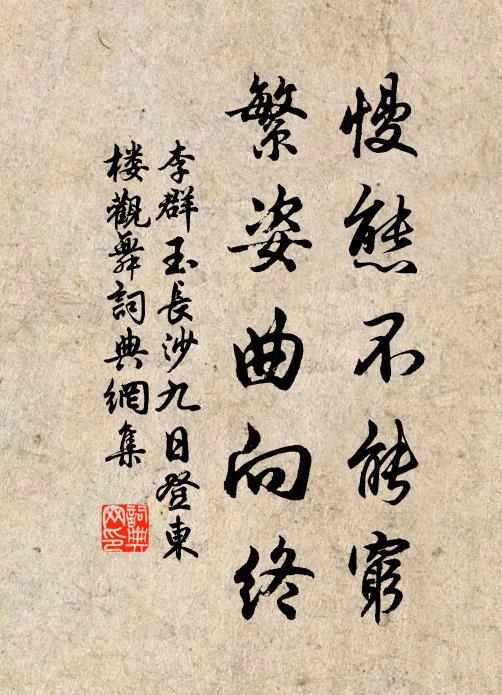 慢態不能窮
繁姿曲向終
李群玉長沙九日登東
楼觀舞詞典網集
詞典
网印